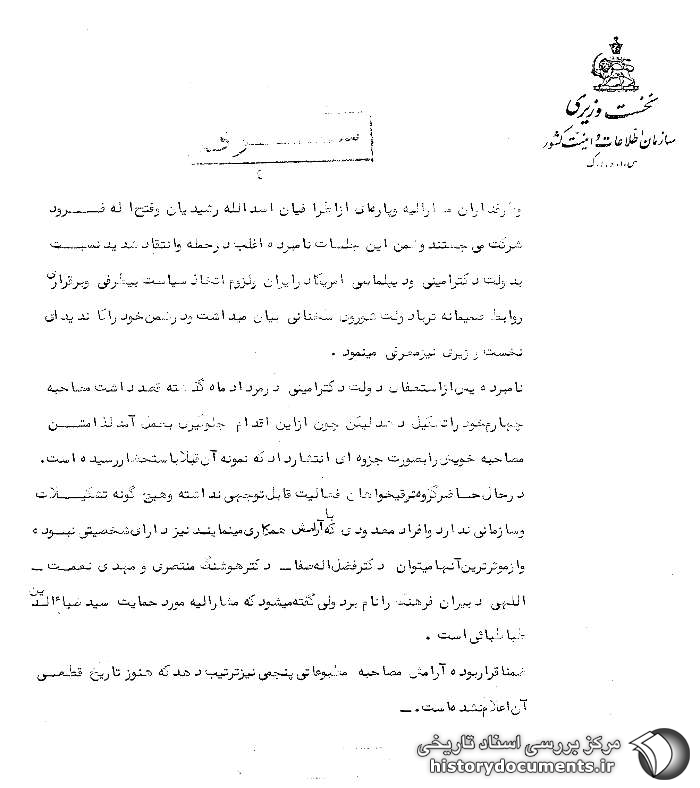 نخست وزیری
سازمان اطلاعات و امنیت کشور
س.ا.و.ا.ک
وطرفداران مشارالیه وپاره‌ای ازاطرافیان اسدالله رشیدیان وفتح‌اله فـــرود
شرکت می جستند وضمن این جلسات نامبرده اغلب درحمله وانتقاد شدید نسبت
بدولت دکترامینی ودیپلماسی امریکادرایران ولزوم اتخاذ سیاست بیطرفی وبرقراری
روابط صمیمانه تربادولت شوروی سخنانی بیان میداشت ودرضمن خود راکاندیدای
نخست وزیری نیزمعرفی مینمود .
نامبرده پس‌ازاستعفای دولت دکترامینی درمردادماه گذشته قصد داشت مصاحبه
چهارم‌خود راتشکیل دهد لیکن چون ازاین اقدام جلوگیری بعمل آمد لذا متــن
مصاحبه خویش رابصورت جزوه ای انتشارداد که نمونه آن قبلا باستحضاررسیده است.
درحال حاضرگروه ترقیخواهان فعالیت قابل توجهی نداشته وهیچ گونه تشکیــلات
وسازمانی ندارد وافراد معدودی که با آرامش همکاری مینمایند نیز دارای شخصیتی نبوده
وازموثرترین آنها میتوان دکترفضل‌اله صفا ـ دکترهوشنگ منتصری و مهدی نعمت ـ
اللهی دبیران فرهنگ رانام برد ولی گفته میشود که مشارالیه مورد حمایت سید ضیاءالدین
طباطبائی است .
ضمنا قراربوده آرامش مصاحبه مطبوعاتی پنجمی نیزترتیب دهد که هنوز تاریخ قطعــی
آن اعلام نشده است. ـ
مرکز بررسی اسناد تاریخی
historydocuments.ir